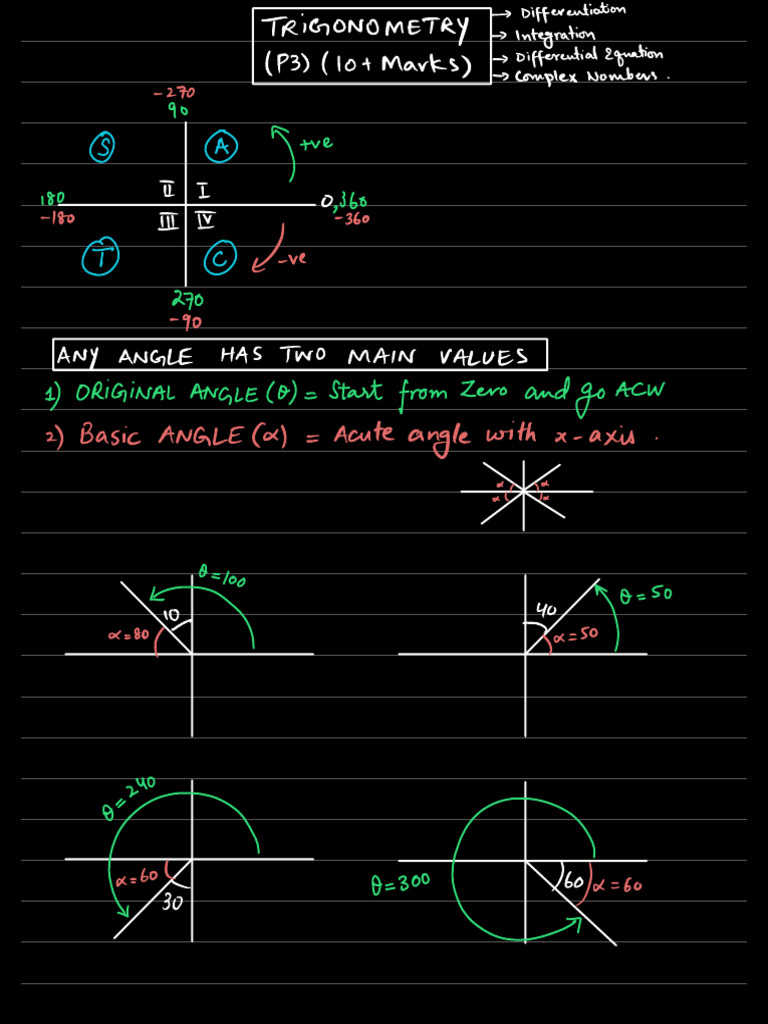 TRIGONOMETRY
(P3) (10+ Marks)
→ Differentiation
→ Integration
→ Differential Equation
→ Complex Numbers.
-270
90
S
A
+ve
II
I
180
0,360
-180
III
IV
-360
T
C
-ve
270
-90
ANY ANGLE HAS TWO MAIN VALUES
1) ORIGINAL ANGLE (θ) = Start from Zero and go ACW
2) Basic ANGLE (α) = Acute angle with x-axis.
α
α
α
α
θ=100
10
α=80
θ=50
40
α=50
θ=240
α=60
30
θ=300
60
α=60